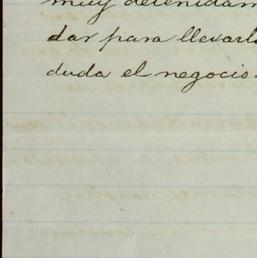 muy detenidam
dar para llevarl
duda el negocio.